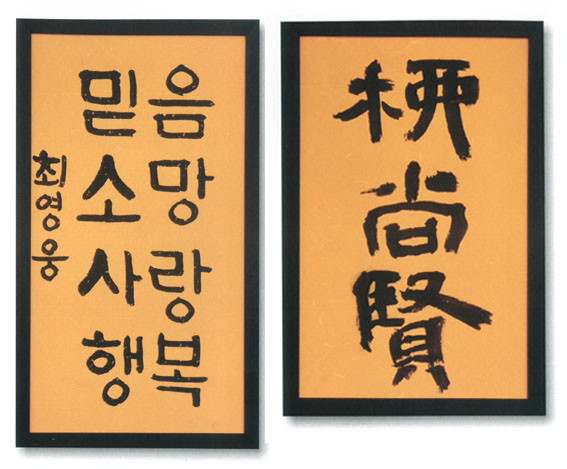 믿음
소망
사랑
행복
최영웅
栖尚賢